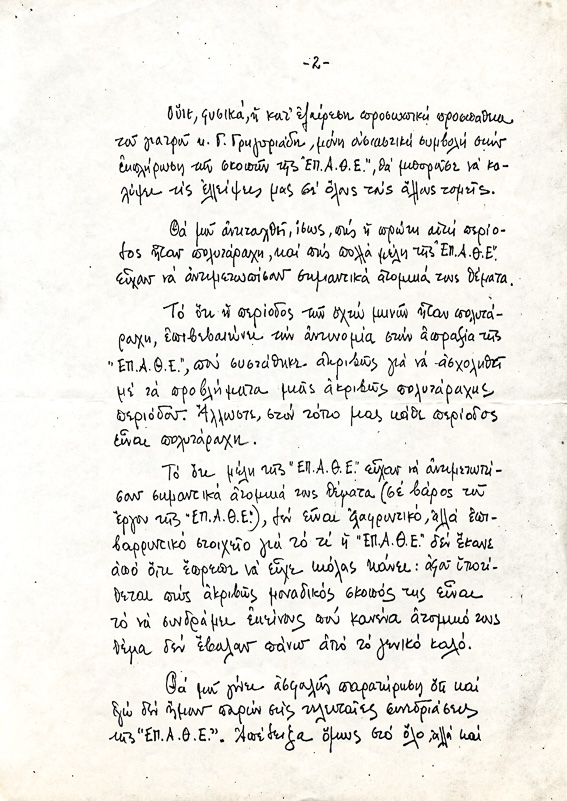 -2-
Οὔτε, φυσικά, ἡ κατ' ἐξαίρεση προσωπική προσπάθεια
τοῦ γιατροῦ κ. Γ. Γρηγοριάδη, μόνη οὐσιαστική συμβολή στήν
ἐκπλήρωση τῶν σκοπῶν τῆς "ΕΠ.Α.Θ.Ε.", θά μποροῦσε νά κα-
λύψει τίς ἐλλείψεις μας σέ ὅλους τούς ἄλλους τομεῖς.
Θά μοῦ ἀντιταχθῆ, ἴσως, πώς ἡ πρώτη αὐτή περίο-
δος ἦταν πολυτάραχη, καί πώς πολλά μέλη τῆς "ΕΠ.Α.Θ.Ε."
εἶχαν νά ἀντιμετωπίσουν σημαντικά ἀτομικά τους θέματα.
Τό ὅτι ἡ περίοδος τῶν ὀχτώ μηνῶν ἦταν πολυτά-
ραχη, ἐπιβεβαιώνει τήν ἀντινομία στήν ἀπραξία τῆς
"ΕΠ.Α.Θ.Ε.", πού συστάθηκε ἀκριβῶς γιά νά ἀσχοληθῆ
μέ τά προβλήματα μιᾶς ἀκριβῶς πολυτάραχης
περιόδου. Ἄλλωστε, στόν τόπο μας κάθε περίοδος
εἶναι πολυτάραχη.
Τό ὅτι μέλη τῆς "ΕΠ.Α.Θ.Ε." εἶχαν νά ἀντιμετωπί-
σουν σημαντικά ἀτομικά τους θέματα (σέ βάρος τοῦ
ἔργου τῆς "ΕΠ.Α.Θ.Ε."), δέν εἶναι ἐλαφρυντικό, ἀλλά ἐπι-
βαρρυντικό στοιχεῖο γιά τό τί ἡ "ΕΠ.Α.Θ.Ε." δέν ἔκανε
ἀπό ὅτι ἔπρεπε νά εἶχε κιόλας κάνει: ἀφοῦ ὑποτί-
θεται πώς ἀκριβῶς μοναδικός σκοπός της εἶναι
τό νά συνδράμει ἐκείνους πού κανένα ἀτομικό τους
θέμα δέν ἔβαλαν πάνω ἀπό τό γενικό καλό.
Θά μοῦ γίνει ἀσφαλῶς παρατήρηση ὅτι καί
ἐγώ δέν ἤμουν παρών στίς τελευταῖες συνεδριάσεις
τῆς "ΕΠ.Α.Θ.Ε.". Ἀπέδειξα ὅμως στό ὅλο καί